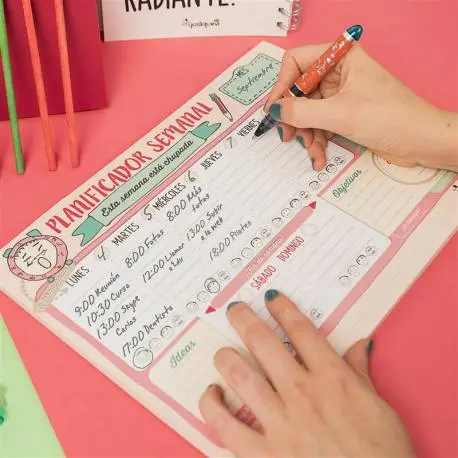 RADIANTE
MES
Septiembre
PLANIFICADOR SEMANAL
Esta semana está chupada
LUNES 4 MARTES 5 MIÉRCOLES 6 JUEVES 7 VIERNES
9:00 Reunión
10:30 Curso
13:00 Skype
Carlos
17:00 Dentista
8:00 Fotos
12:00 Llamar
a
8:00 Más
fotos
13:00 Subir
a la web
18:00 Pilates
Objetivos
SÁBADO DOMINGO
Ideas